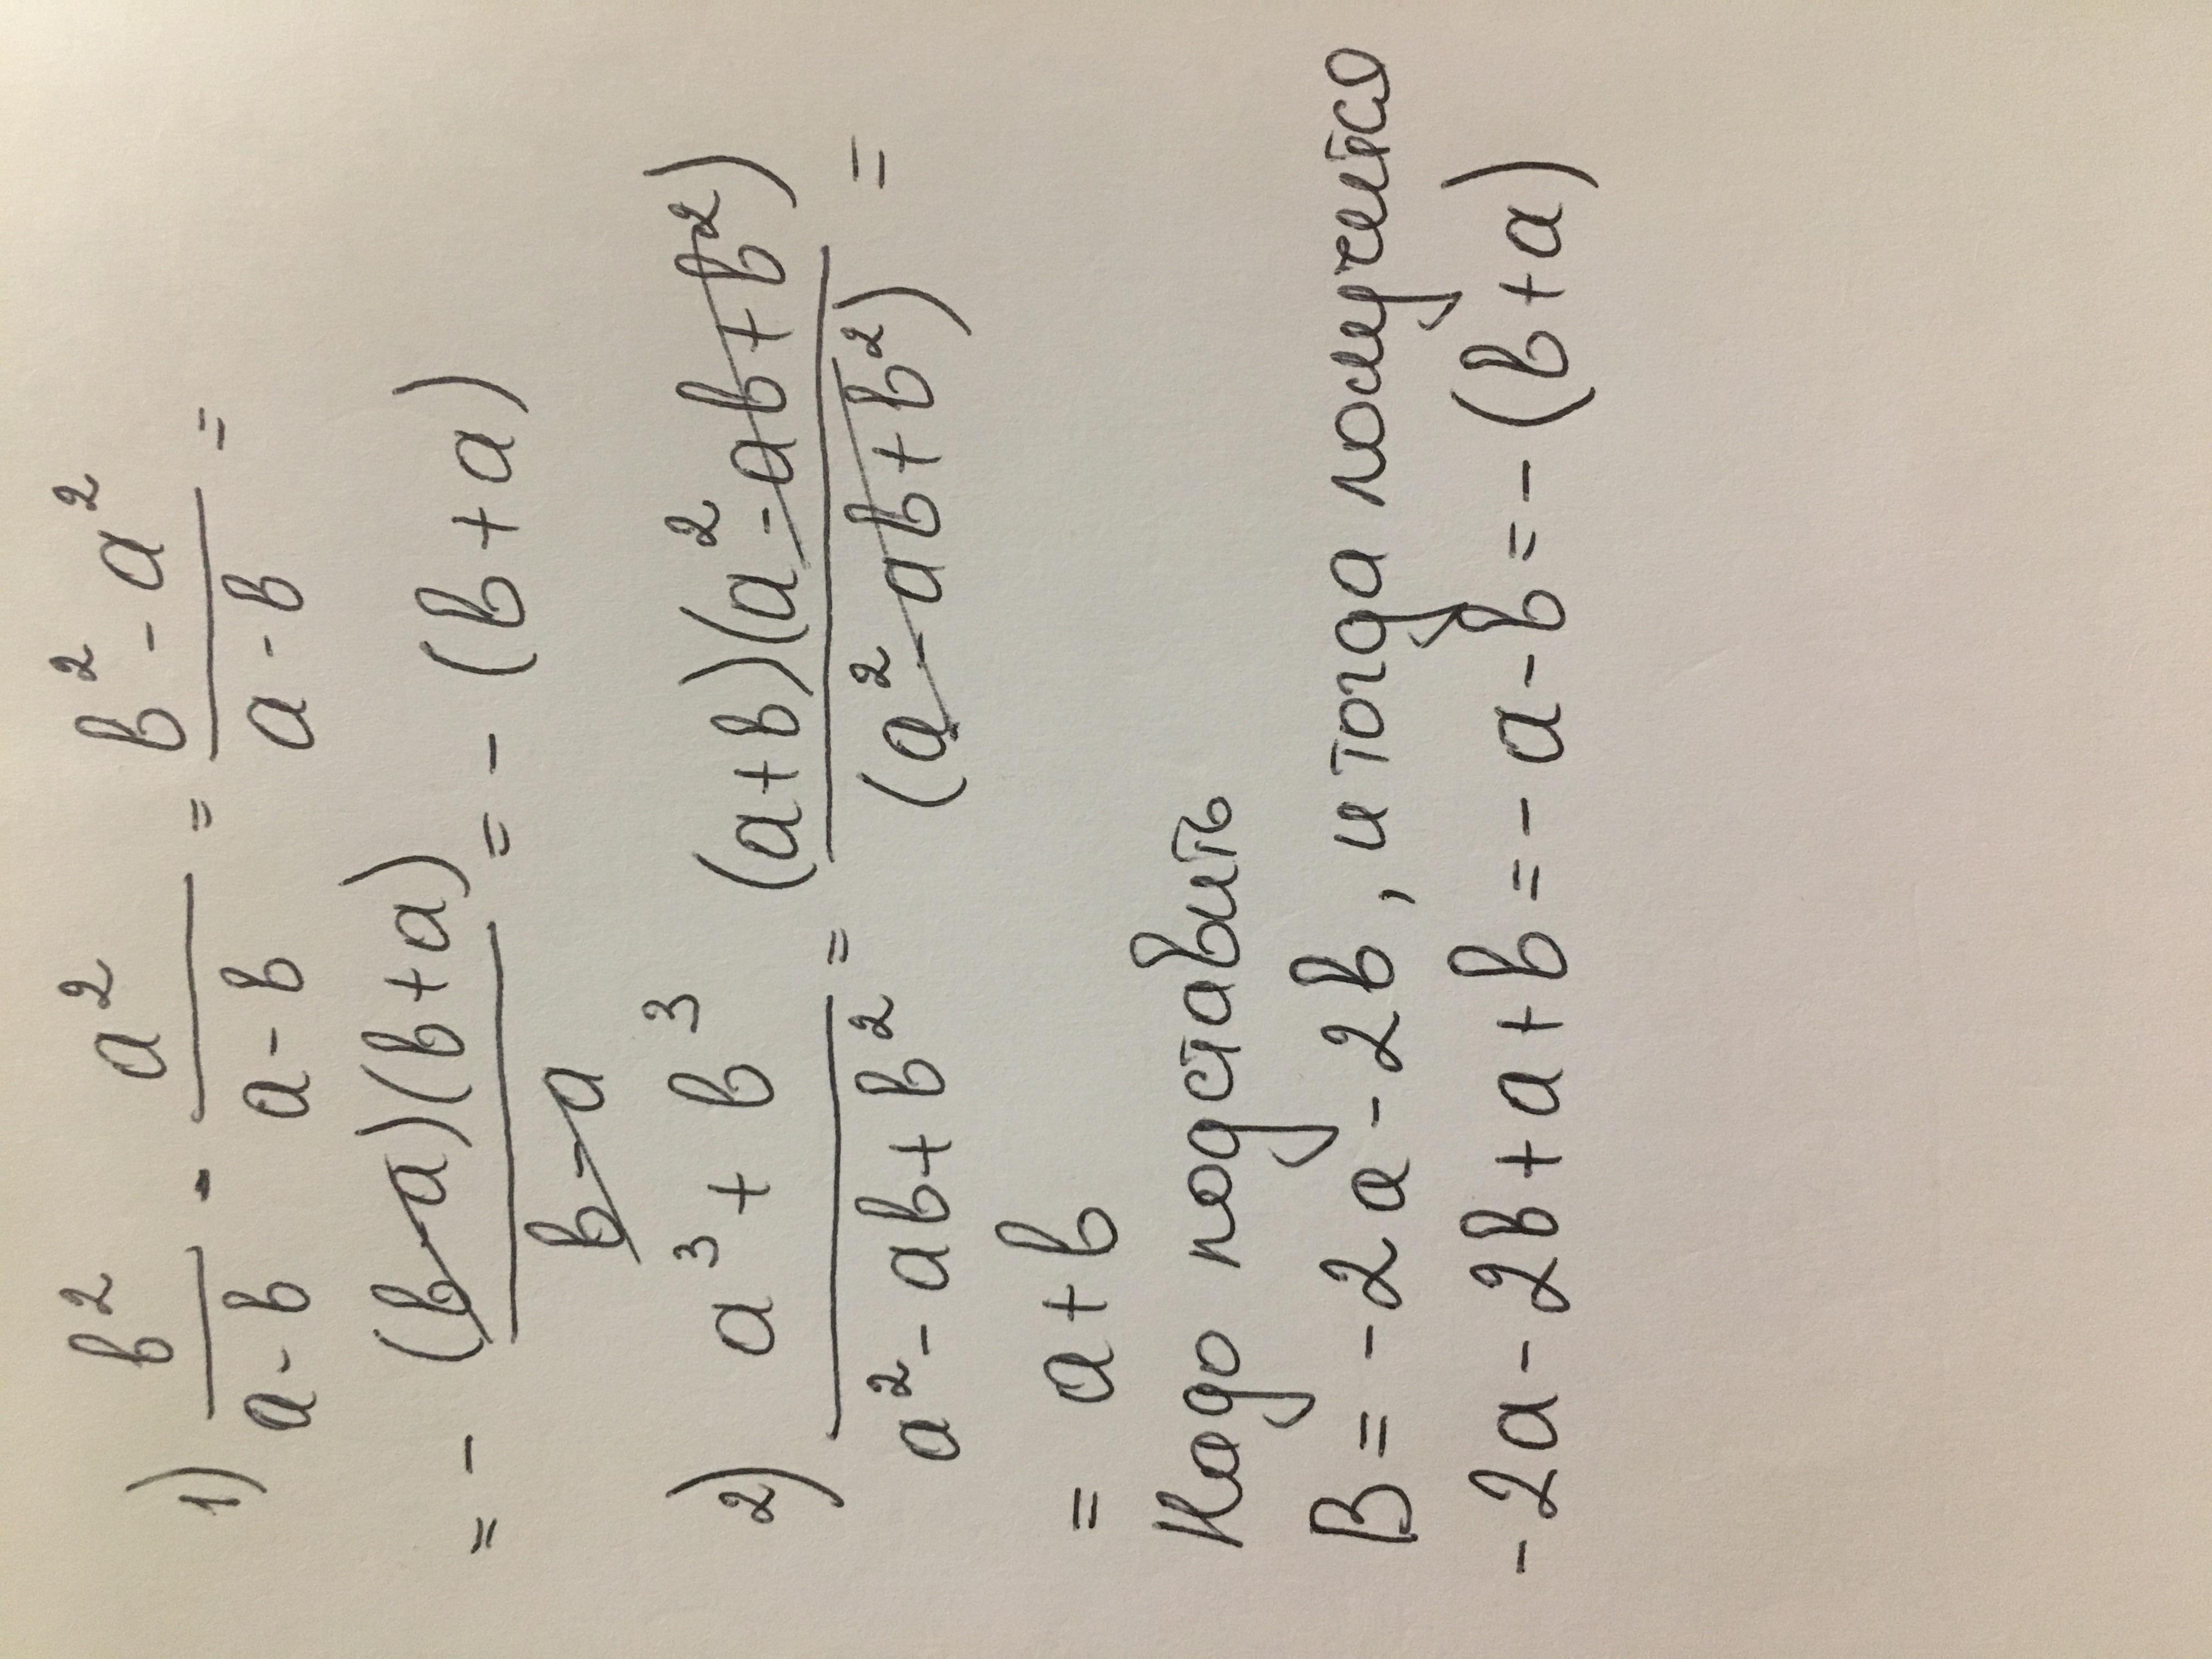 1) b²/(a-b) - a²/(a-b) = (b²-a²)/(a-b) =
= - (b-a)(b+a)/(b-a) = - (b+a)
2) (a³+b³)/(a²-ab+b²) = (a+b)(a²-ab+b²)/(a²-ab+b²) =
= a+b
Надо подставить
B = -2a-2b, и тогда получится
-2a-2b+a+b=-a-b=-(b+a)